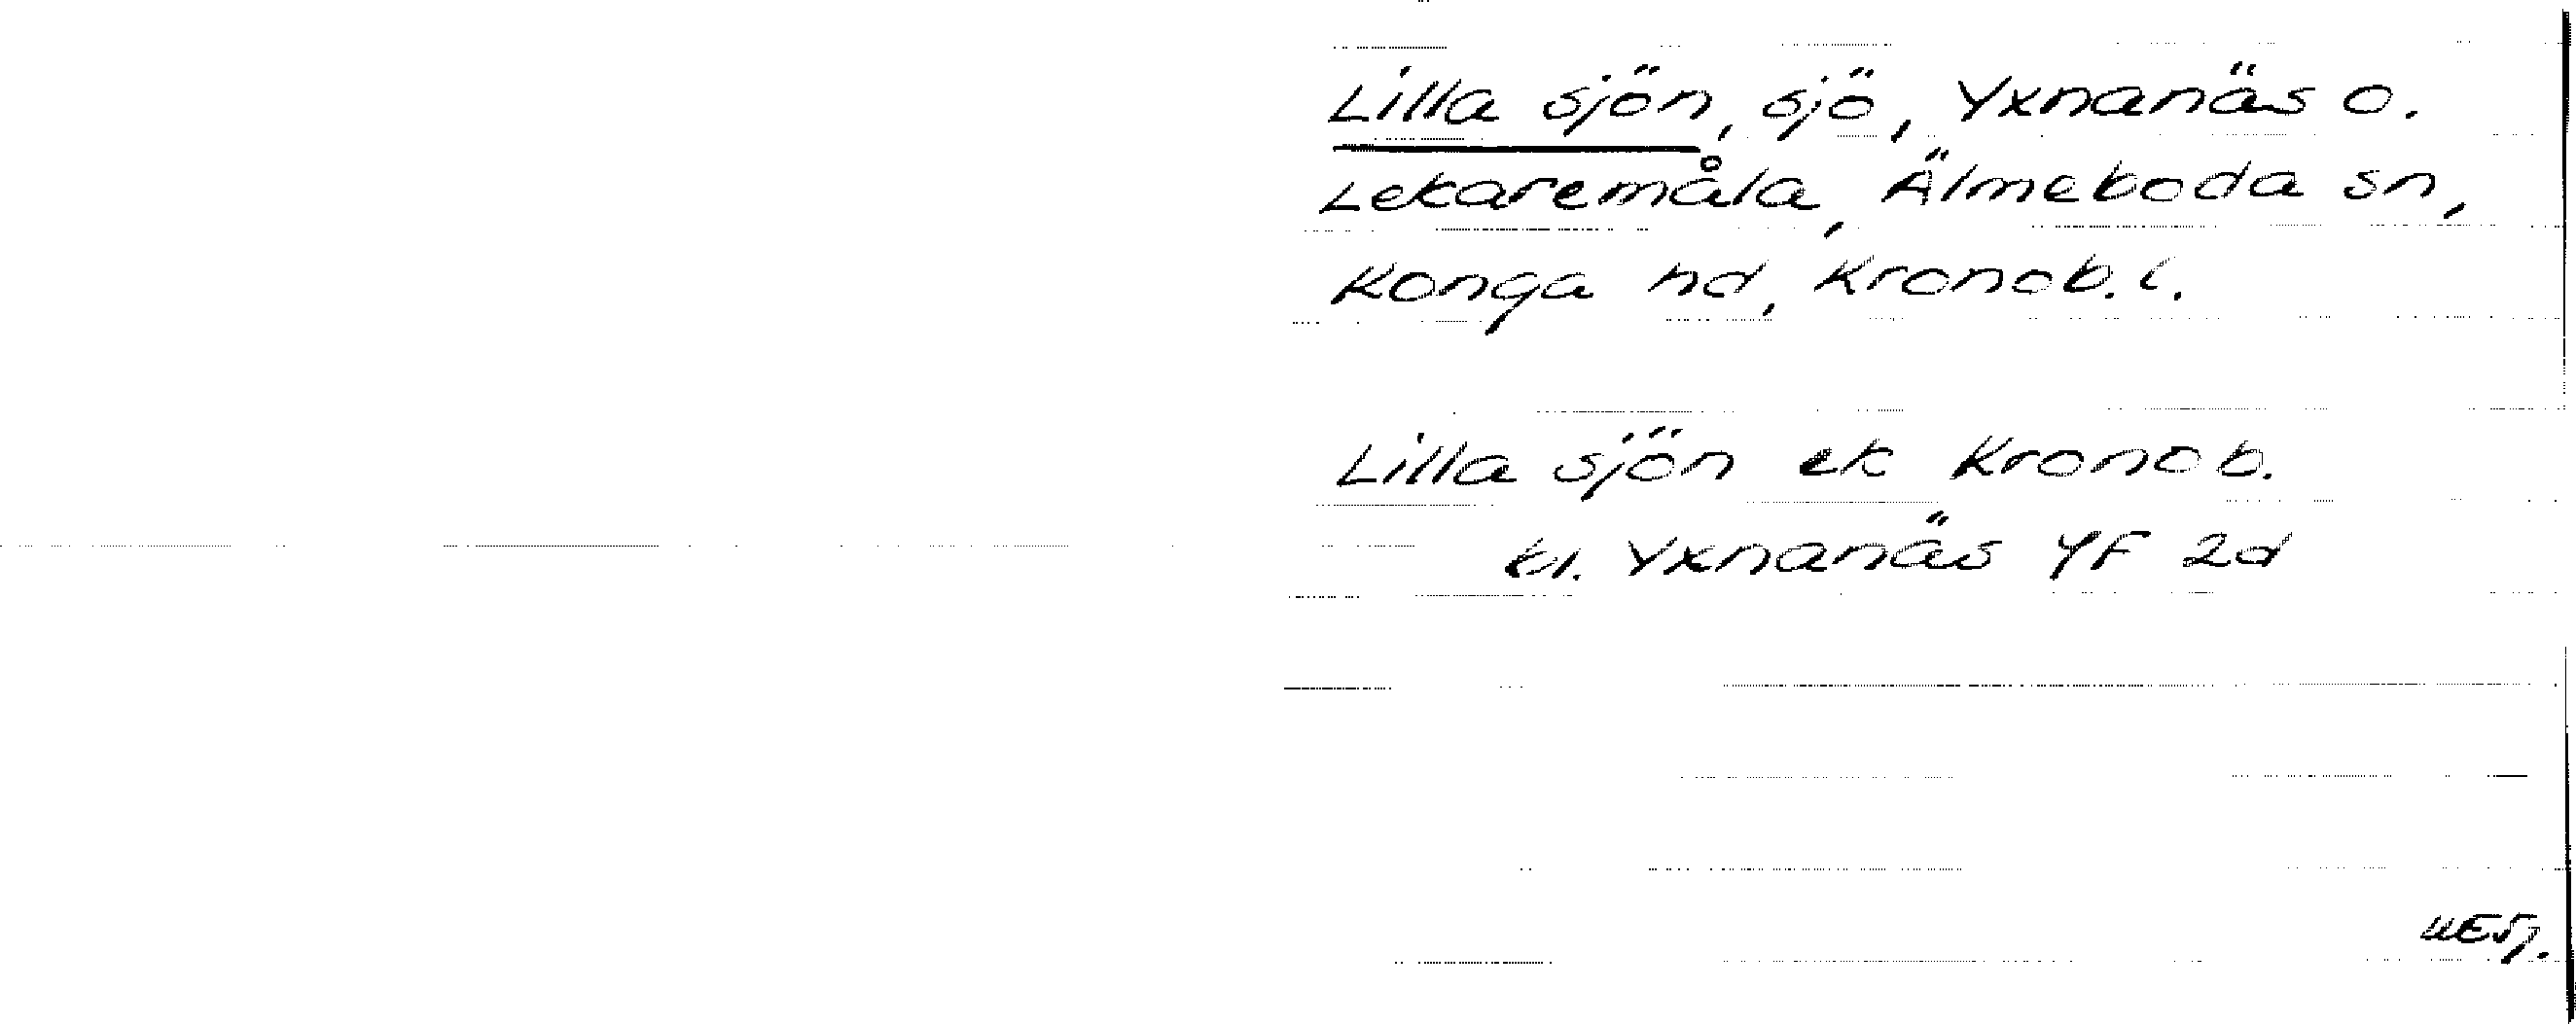 Lilla sjön, sjö, Yxnanäs o.
Lekaremåla, Älmeboda sn,
Konga hd, Kronob. l.
Lilla sjön ek Kronob.
bl. Yxnanäs 4F 2d